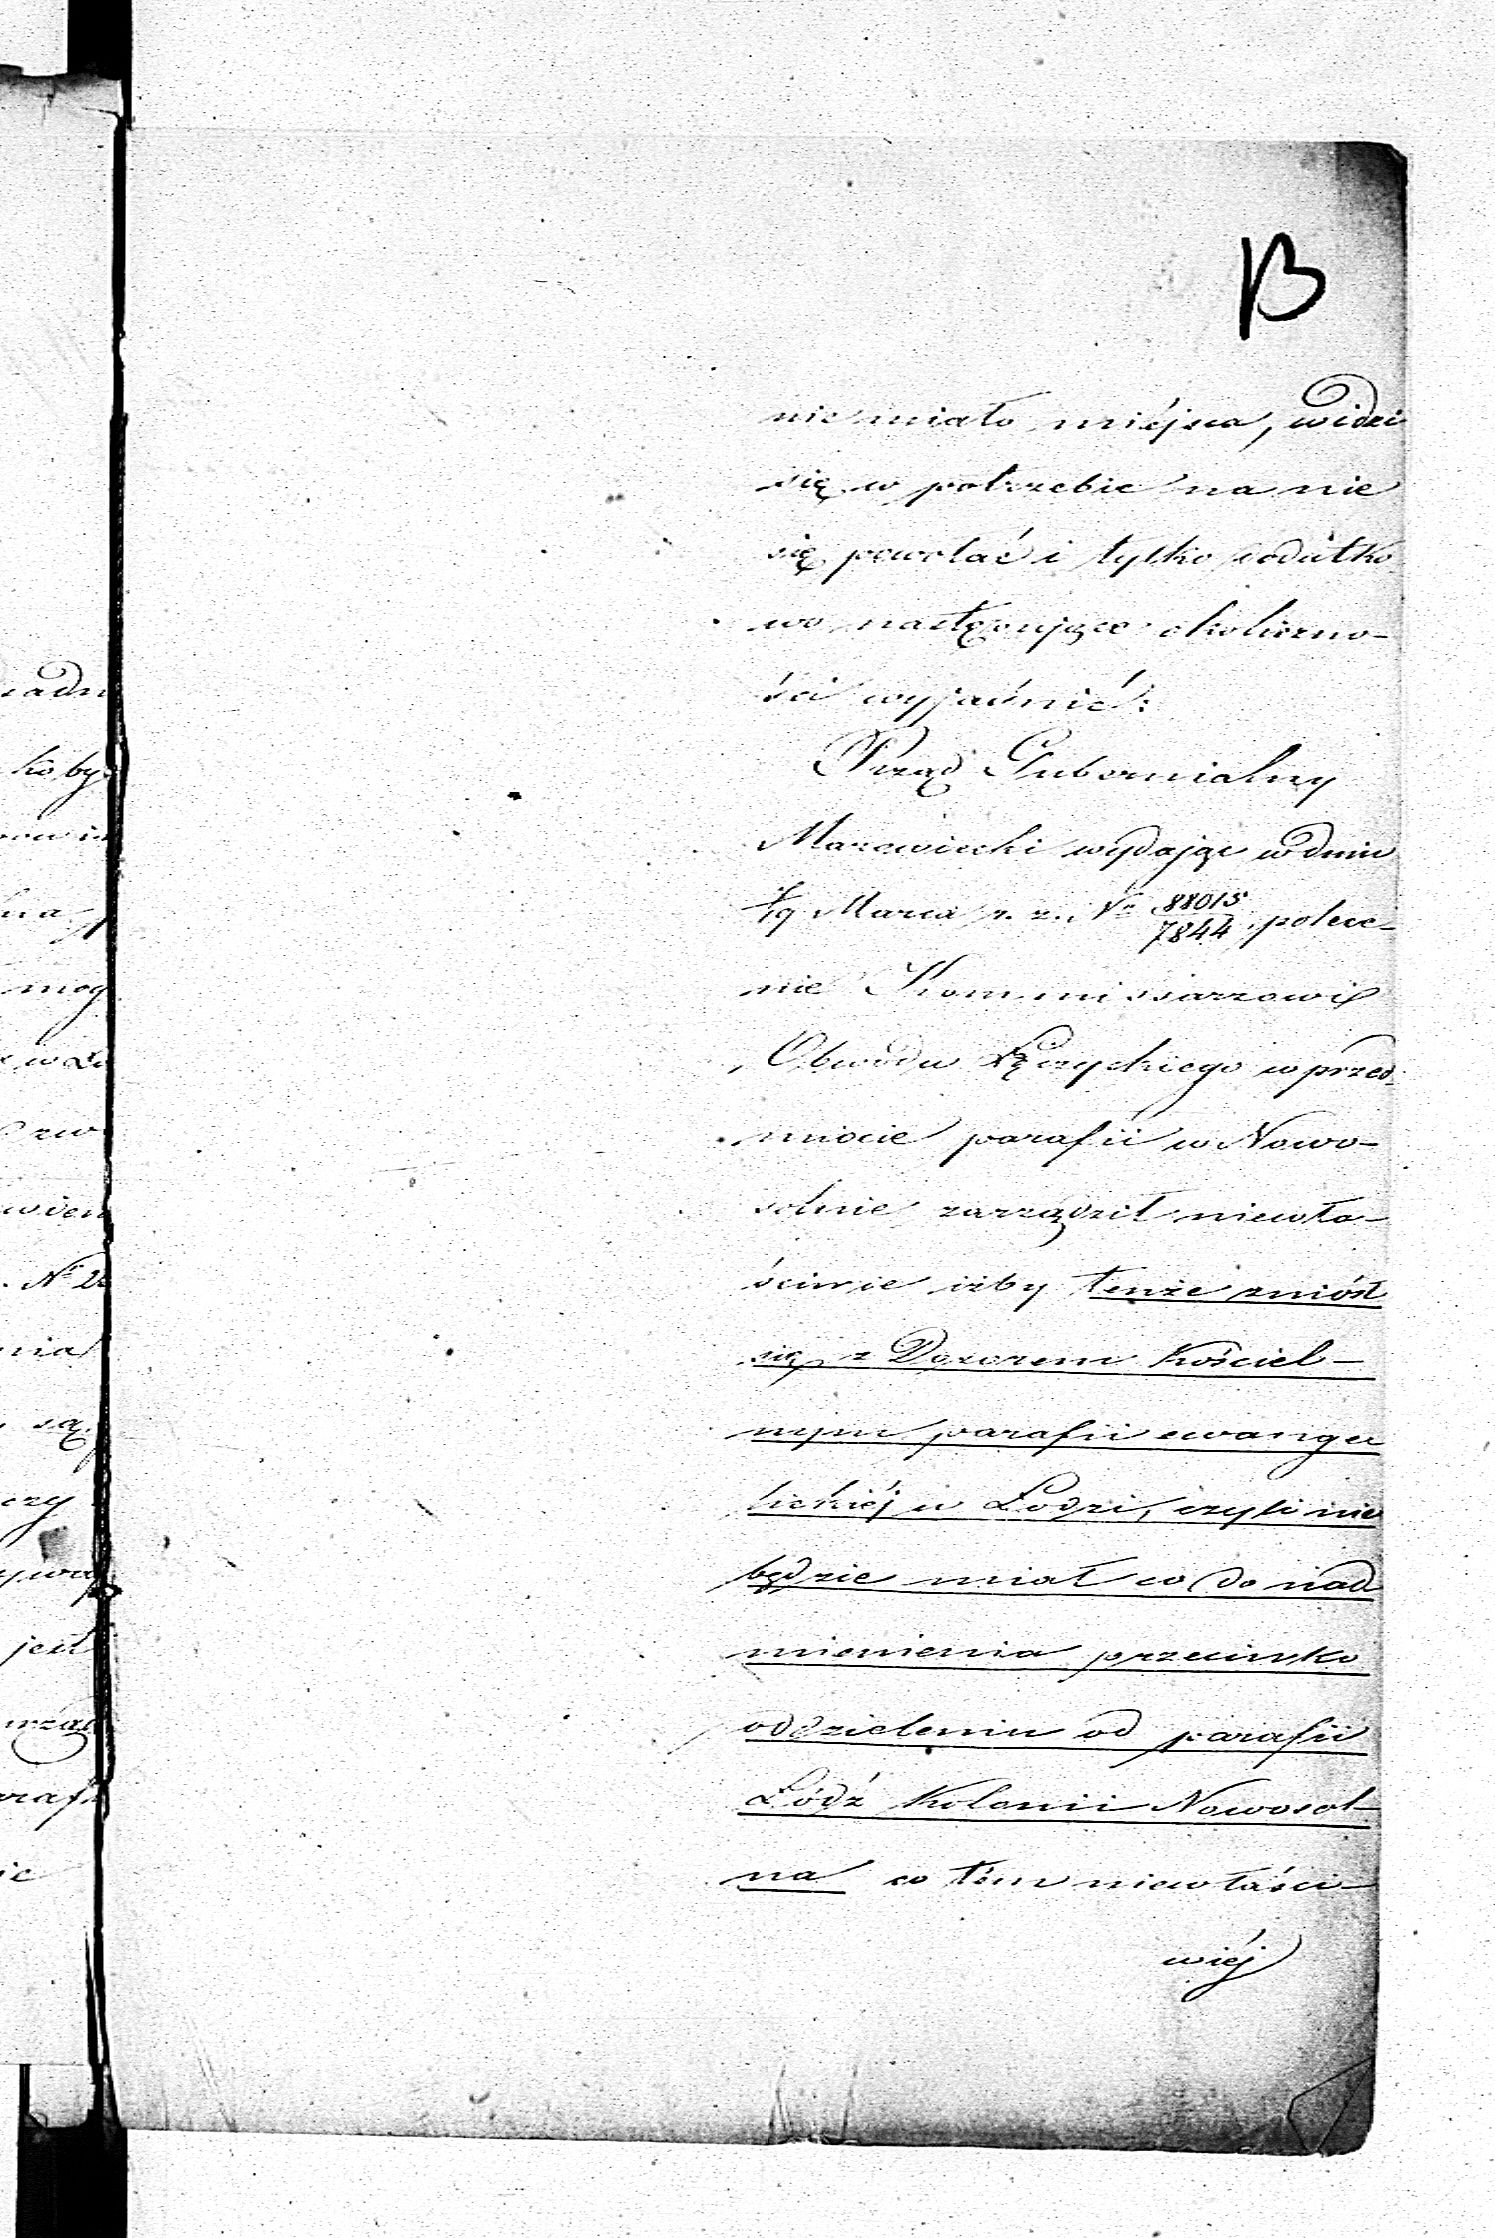 13
nie miało miéjsca, widzi
się w potrzebie na nie
się powołać i tylko dodatko
wo następujące okoliczno-
ści wyjaśnić:
Rząd Gubernialny
Mazowiecki wydając w dniu
7/19 Marca r. z. Nr 88015/7844 polece-
nie Kommissarzowi
Obwodu Łęczyckiego w przed-
miocie parafii w Nowo-
solnie zarządził niewła-
ściwie iżby tenże zniósł
się z Dozorem Kościel-
nym parafii ewange
lickiéj w Łodzi, czyli nie
będzie miał co do nad
mienienia przeciwko
oddzieleniu od parafii
Łódź Kolonii Nowosol-
na co tém niewłaści-
wiéj
iadn
koby
na
mog
w Ło
zw
wien
Nr 2
nia
są
czy
ywa
jest
urząd
paraf
ie